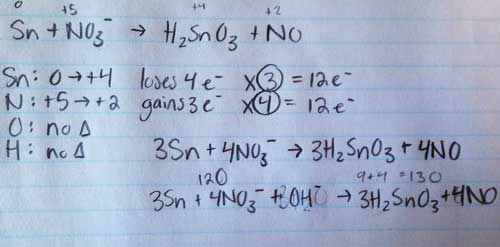 0 +5 +4 +2
Sn + NO₃⁻ → H₂SnO₃ + NO
Sn: 0 → +4 loses 4 e⁻ ×3 = 12e⁻
N: +5 → +2 gains 3 e⁻ ×4 = 12e⁻
O: no Δ
H: no Δ 3Sn + 4NO₃⁻ → 3H₂SnO₃ + 4NO
12O 9+4 = 13O
3Sn + 4NO₃⁻ + OH⁻ → 3H₂SnO₃ + 4NO